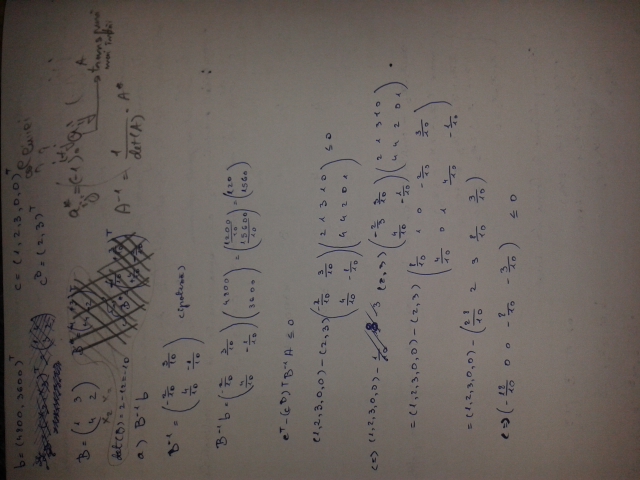 b = (4800, 3600)ᵀ c = (1, 2, 3, 0, 0)ᵀ
cᴮ = (2, 3)ᵀ
B = (1 3
4 2)
x₂ x₃
det(B) = 2 - 12 = -10
transpusă
mai întâi
A⁻¹ = 1/det(A) · A*
a) B⁻¹b
B⁻¹ = (-2/10 3/10
4/10 -1/10) (ipoteze)
B⁻¹b = (-2/10 3/10
4/10 -1/10) (4800
3600) = (1200/10
15600/10) = (120
1560)
cᵀ - (cᴮ)ᵀ B⁻¹ A ≤ 0
(1, 2, 3, 0, 0) - (2, 3) (-2/10 3/10
4/10 -1/10) (2 1 3 1 0
4 4 2 0 1) ≤ 0
(=) (1, 2, 3, 0, 0) - (2, 3) (-2/3 3/10
4/10 -1/10) (2 1 3 1 0
4 4 2 0 1)
= (1, 2, 3, 0, 0) - (2, 3) (8/10 1 0 -2/10 3/10
4/10 0 1 4/10 -1/10)
= (1, 2, 3, 0, 0) - (28/10 2 3 8/10 3/10)
(=) (-18/10 0 0 -8/10 -3/10) ≤ 0